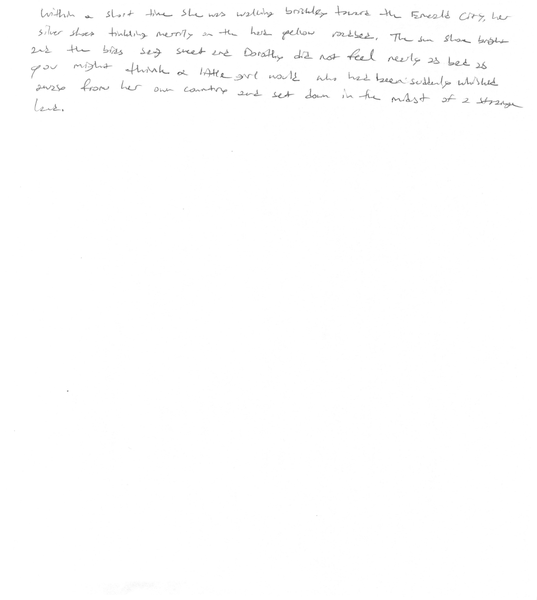 Within a short time she was walking briskley toward the Emerald City, her
silver shoes tinkling merrily on the hard yellow roadbed. The sun shone bright
and the birds sang sweet and Dorothy did not feel nearly as bad as
you might think a little girl would who had been suddenly whisked
away from her own country and set down in the midst of a strange
land.